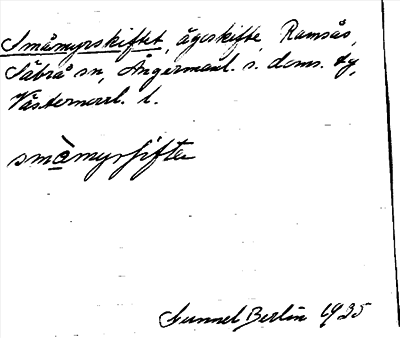 Småmyrskiftet, ägoskifte, Ramsås,
Säbrå sn, Ångermanl. s. doms. ty,
Västernorrl. l.
småmyrsifte
Gunnel Berlin 1935